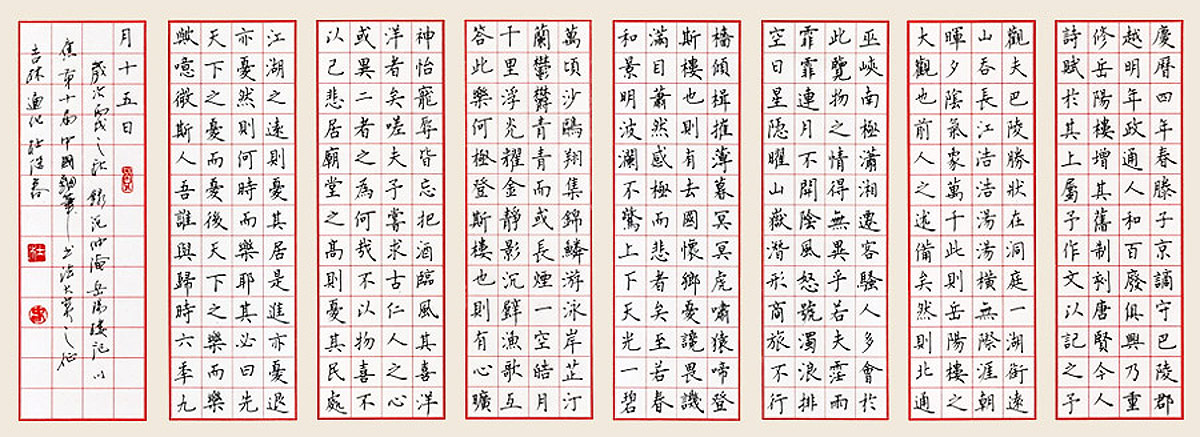 慶曆四年春滕子京謫守巴陵郡
越明年政通人和百廢俱興乃重
修岳陽樓增其舊制刻唐賢今人
詩賦於其上屬予作文以記之予
觀夫巴陵勝狀在洞庭一湖銜遠
山吞長江浩浩湯湯橫無際涯朝
暉夕陰氣象萬千此則岳陽樓之
大觀也前人之述備矣然則北通
巫峽南極瀟湘遷客騷人多會於
此覽物之情得無異乎若夫霪雨
霏霏連月不開陰風怒號濁浪排
空日星隱曜山嶽潛形商旅不行
檣傾楫摧薄暮冥冥虎嘯猿啼登
斯樓也則有去國懷鄉憂讒畏譏
滿目蕭然感極而悲者矣至若春
和景明波瀾不驚上下天光一碧
萬頃沙鷗翔集錦鱗游泳岸芷汀
蘭鬱鬱青青而或長煙一空皓月
千里浮光耀金靜影沉璧漁歌互
答此樂何極登斯樓也則有心曠
神怡寵辱皆忘把酒臨風其喜洋
洋者矣嗟夫予嘗求古仁人之心
或異二者之為何哉不以物喜不
以己悲居廟堂之高則憂其民處
江湖之遠則憂其君是進亦憂退
亦憂然則何時而樂耶其必曰先
天下之憂而憂後天下之樂而樂
歟噫微斯人吾誰與歸時六年九
月十五日
歲次丙戌之秋錄范仲淹岳陽樓記以
應第十屆中國鋼筆書法大賽之征
吉林通化